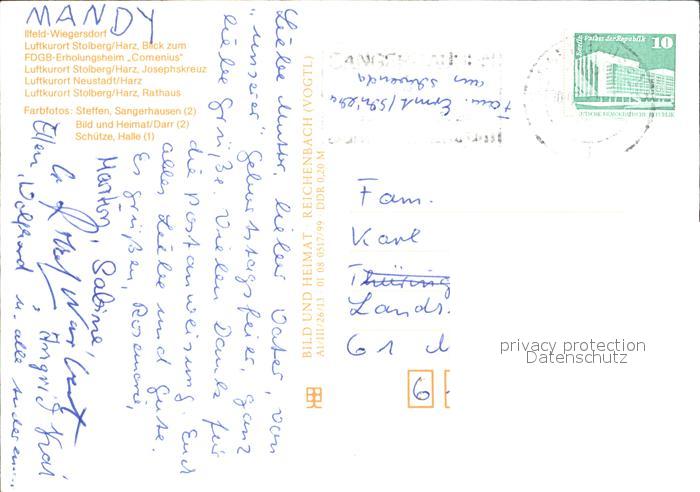 MANDY
Ilfeld-Wiegersdorf
Luftkurort Stolberg/Harz, Blick zum
FDGB-Erholungsheim „Comenius"
Luftkurort Stolberg/Harz, Josephskreuz
Luftkurort Neustadt/Harz
Luftkurort Stolberg/Harz, Rathaus
Farbfotos: Steffen, Sangerhausen (2)
Bild und Heimat/Darr (2)
Schütze, Halle (1)
Liebe Mutter, lieber Vater, von
"unserer" Geburtstagsfeier, ganz
liebe Grüße. Vielen Dank für
die Postanweisung. Euch
alles Liebe und Gute.
Es grüßen, Rosemarie,
Marion, Sabine,
Ingrid Kai
Ellen, u. alle anderen...
BILD UND HEIMAT REICHENBACH (VOGTL)
A1/III/26/13 01 08 0517/99 DDR 0,20 M
Fam. Ernst
aus Schwenda
Berlin Palast der Republik
10
DEUTSCHE DEMOKRATISCHE REPUBLIK
Fam.
Karl
Thüring
Landr.
61
6
privacy protection
Datenschutz